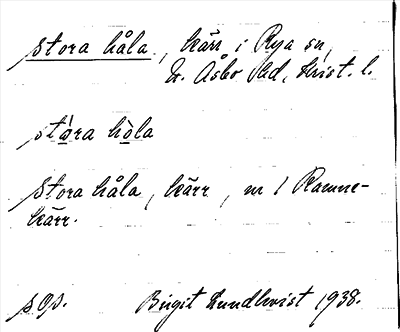 stora håla, kärr i Rya sn,
N. Åsbo hd, Krist. l.
stóra hòla
Stora håla, kärr, nr 1 Ramne-
kärr.
sOp. Birgit Lundkvist 1938.